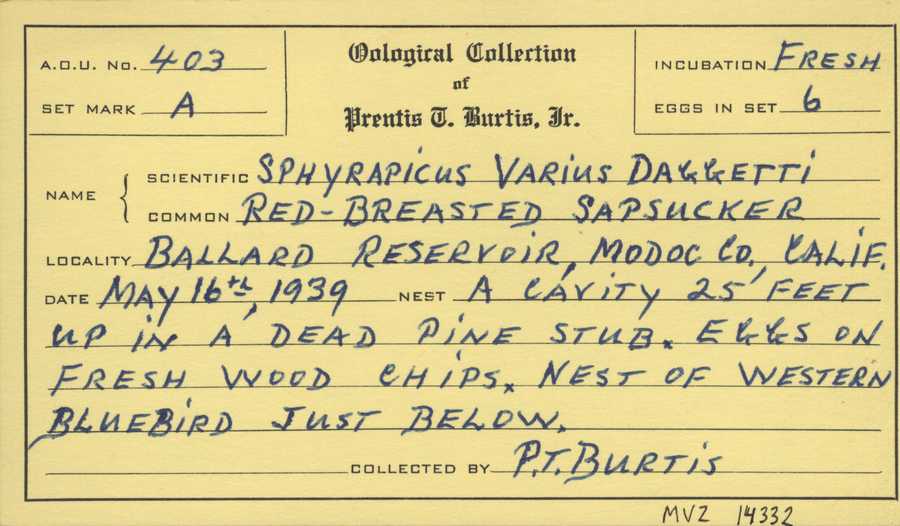 A.O.U. No. 403
SET MARK A
Oological Collection
of
Prentis T. Burtis, Jr.
INCUBATION FRESH
EGGS IN SET 6
NAME { SCIENTIFIC SPHYRAPICUS VARIUS DAGGETTI
COMMON RED-BREASTED SAPSUCKER
LOCALITY BALLARD RESERVOIR, MODOC CO., CALIF.
DATE MAY 16th, 1939 NEST A CAVITY 25 FEET
UP IN A DEAD PINE STUB. EGGS ON
FRESH WOOD CHIPS. NEST OF WESTERN
BLUEBIRD JUST BELOW.
COLLECTED BY P.T. BURTIS
MVZ 14332